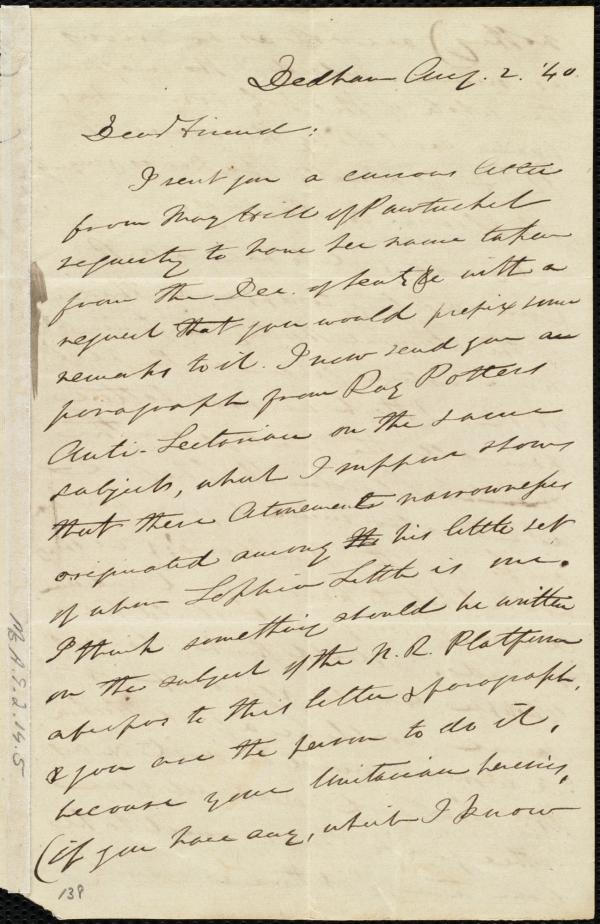 Dedham Aug. 2. '40.
Dear Friend:
I sent you a curious letter
from May Hill of Pawtucket
requesty to have her name taken
from the Dec. of Sent. &c with a
request that you would prefix some
remarks to it. I now send you a
paragraph from Ray Potters
Anti-Sectarian on the same
subject, what I suppose shows
that these Atonement narrownesses
originated among his little set
of whom Sophia Little is one.
I think something should be written
on the subject of the N. R. Platform
apropos to this letter & paragraph,
& you are the person to do it,
because your Unitarian heresies,
(if you have any, which I know
138
Ms.A.9.2.14.5